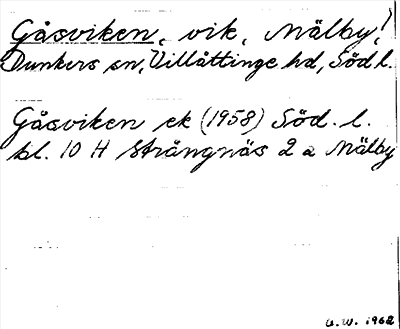 Gåsviken, vik, Mälby,
Dunkers sn, Villåttinge hd, Södl.
Gåsviken ek (1958) Söd. l.
bl. 10 H Strängnäs 2 a Mälby
U.W. 1962